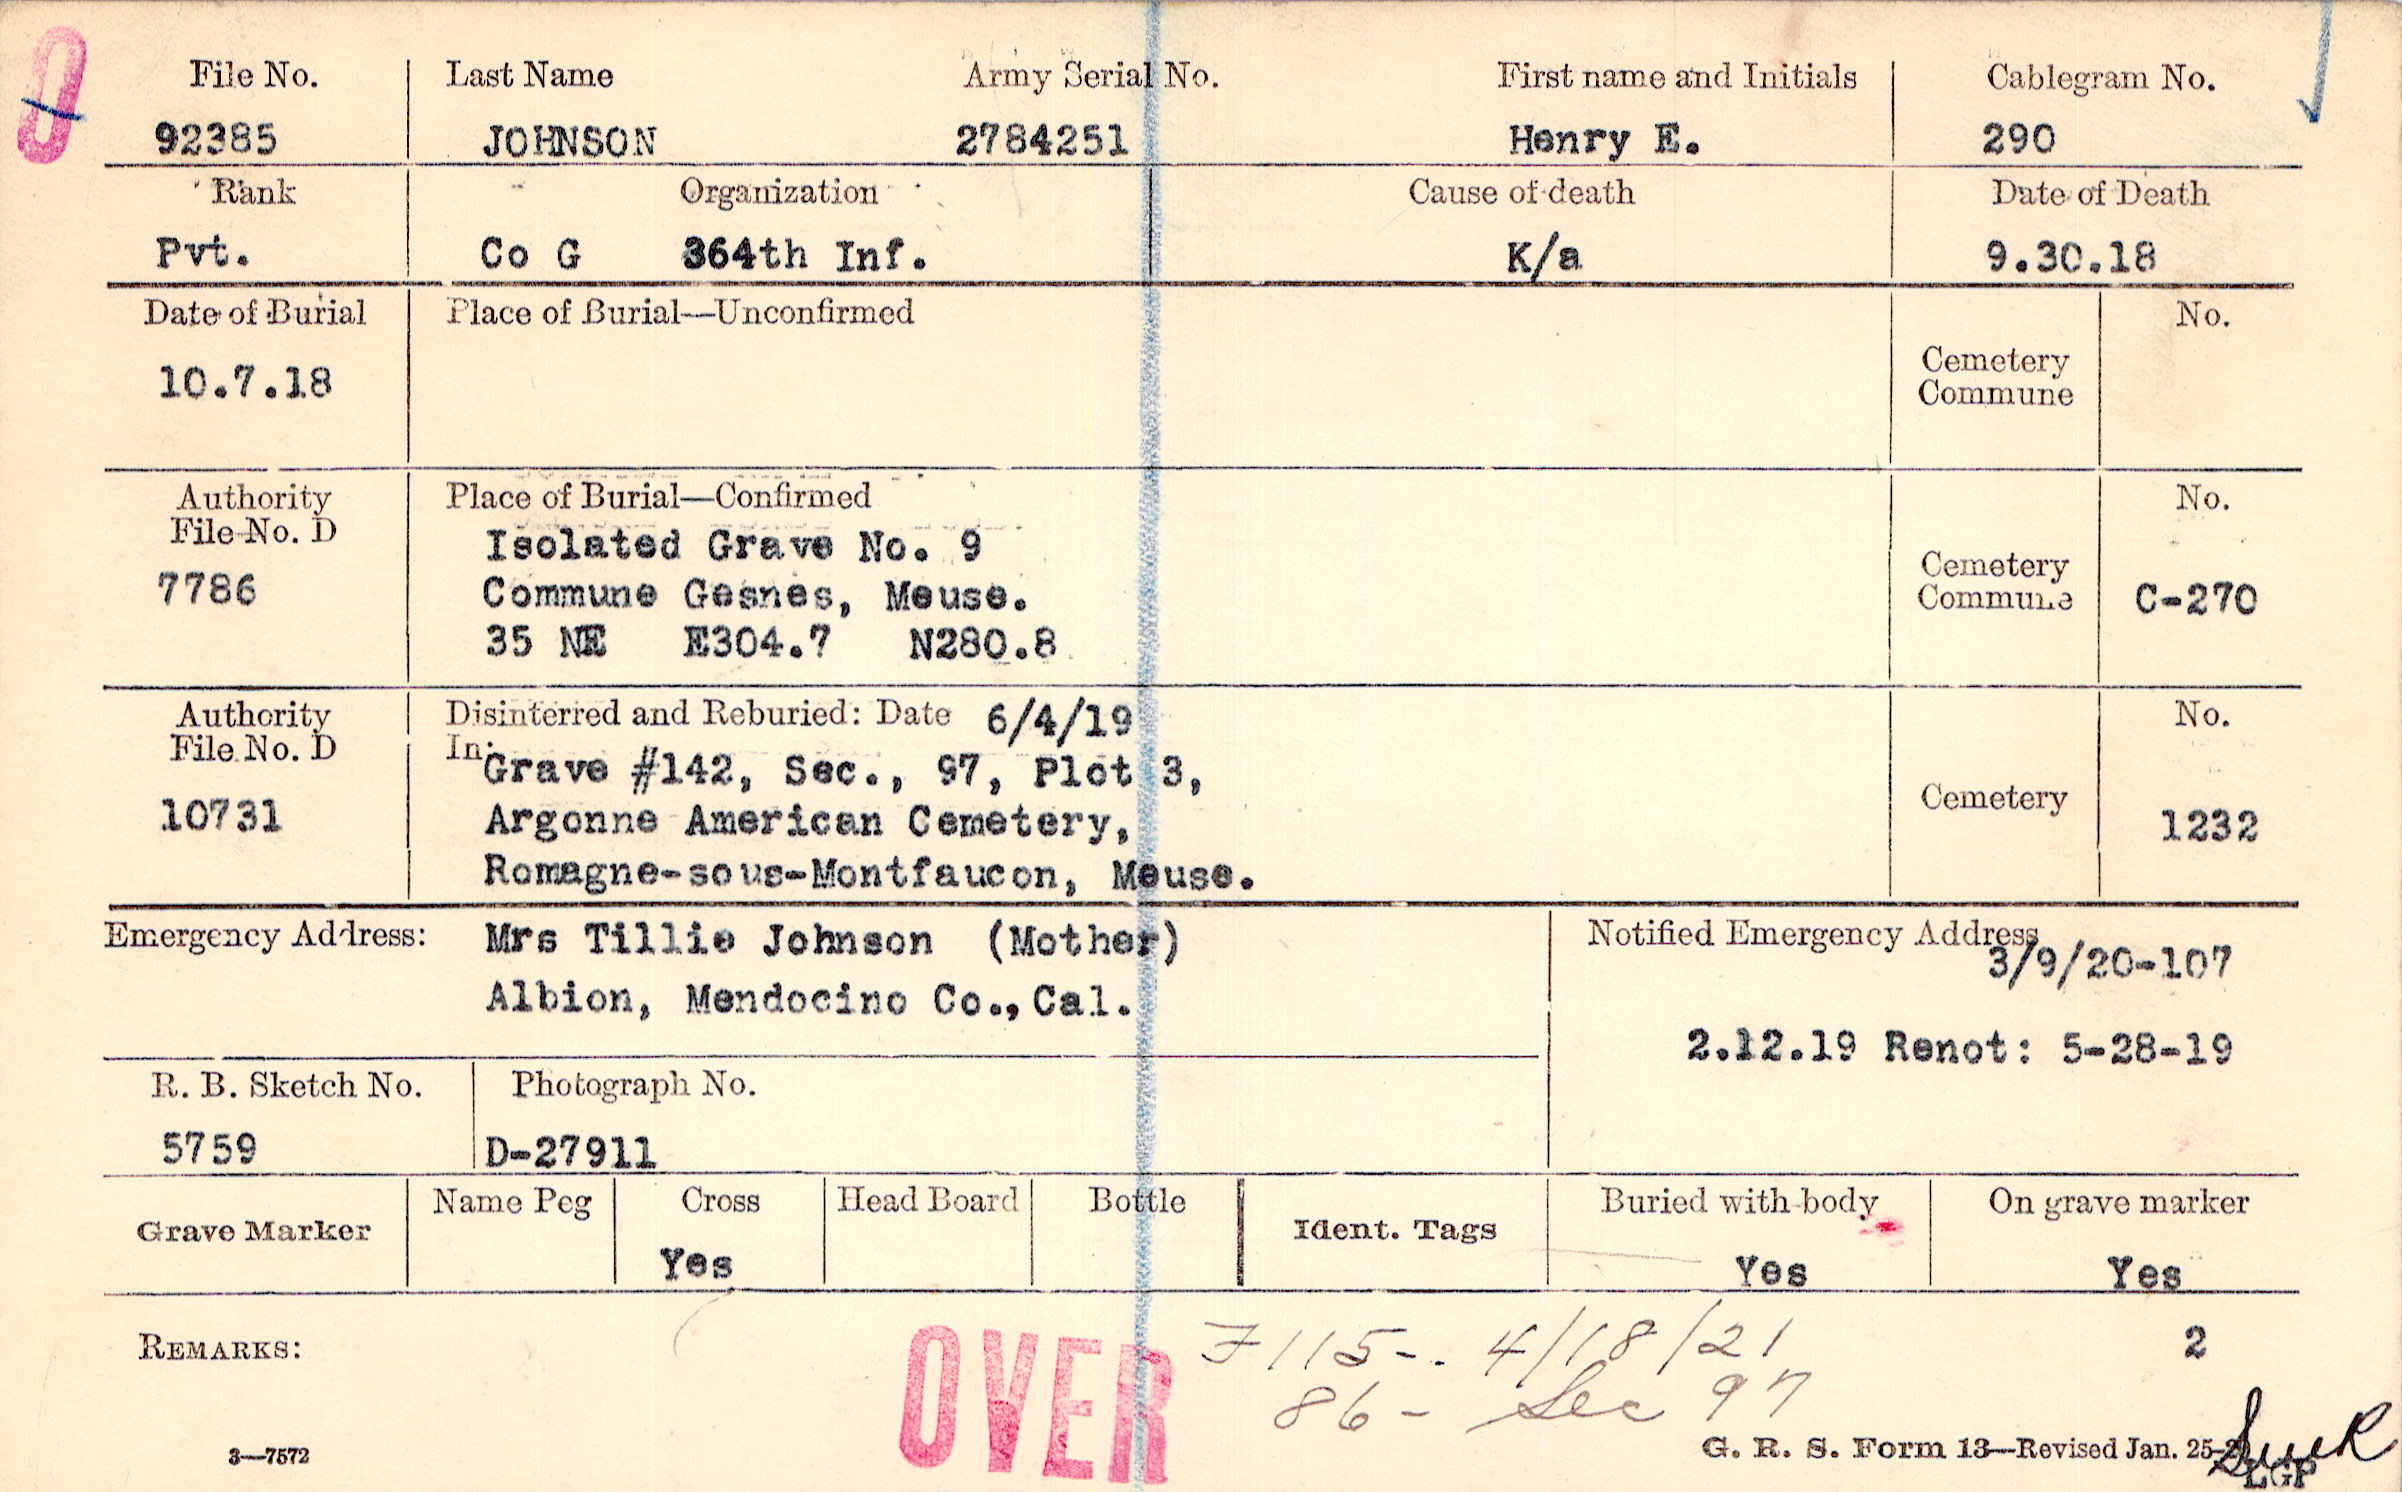 O
File No. Last Name Army Serial No. First name and Initials Cablegram No.
92385 JOHNSON 2784251 Henry E. 290
Rank Organization Cause of death Date of Death
Pvt. Co G 364th Inf. K/a 9.30.18
Date of Burial Place of Burial—Unconfirmed No.
10.7.18 Cemetery
Commune
Authority Place of Burial—Confirmed No.
File No. D Isolated Grave No. 9
7786 Commune Gesnes, Meuse. Cemetery
Commune C-270
35 NE E304.7 N280.8
Authority Disinterred and Reburied: Date 6/4/19 No.
File No. D In: Grave #142, Sec., 97, Plot 3,
10731 Argonne American Cemetery, Cemetery 1232
Romagne-sous-Montfaucon, Meuse.
Emergency Address: Mrs Tillie Johnson (Mother) Notified Emergency Address
3/9/20-107
Albion, Mendocino Co., Cal.
2.12.19 Renot: 5-28-19
R. B. Sketch No. Photograph No.
5759 D-27911
Grave Marker Name Peg Cross Head Board Bottle Ident. Tags Buried with body On grave marker
Yes Yes Yes
REMARKS: OVER 7115-. 4/18/21 2
86- Sec 97
3—7572 G. R. S. Form 13—Revised Jan. 25-
LGP